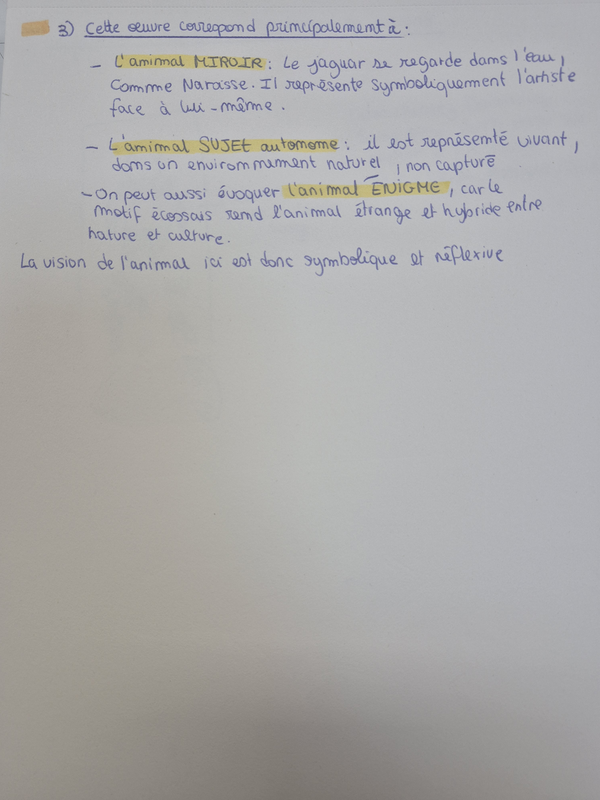 3) Cette œuvre correspond principalement à :
– L'animal MIROIR : Le jaguar se regarde dans l'eau,
comme Narcisse. Il représente symboliquement l'artiste
face à lui-même.
– L'animal SUJET autonome : il est représenté vivant,
dans un environnement naturel, non capturé
– On peut aussi évoquer l'animal ÉNIGME, car le
motif écossais rend l'animal étrange et hybride entre
nature et culture.
La vision de l'animal ici est donc symbolique et réflexive